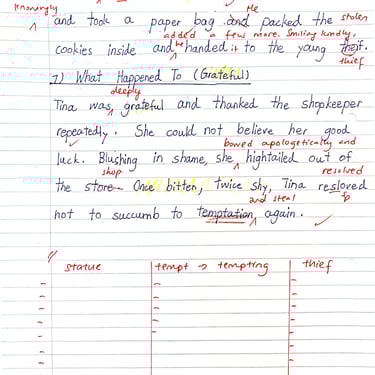 knowingly
He stolen
and took a paper bag and packed the
added a few more. Smiling kindly,
cookies inside and he handed it to the young theif.
thief
7) What Happened To (Grateful)
deeply
Tina was grateful and thanked the shopkeeper
repeatedly. She could not believe her good
bowed apologetically and
luck. Blushing in shame, she hightailed out of
shop resolved
the store Once bitten, twice shy, Tina resloved
and steal to
not to succumb to temptation again.
statue tempt → tempting thief